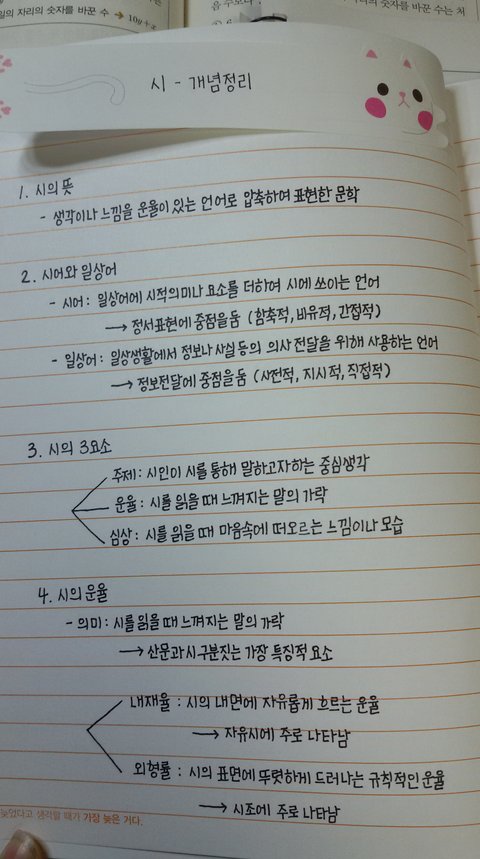 일의 자리의 숫자를 바꾼 수 → 10y+x
리의 숫자를 바꾼 수는 처
시 - 개념정리
1. 시의 뜻
- 생각이나 느낌을 운율이 있는 언어로 압축하여 표현한 문학
2. 시어와 일상어
- 시어 : 일상어에 시적의미나 요소를 더하여 시에 쓰이는 언어
→ 정서표현에 중점을 둠 (함축적, 비유적, 간접적)
- 일상어 : 일상생활에서 정보나 사실 등의 의사 전달을 위해 사용하는 언어
→ 정보전달에 중점을 둠 (사전적, 지시적, 직접적)
3. 시의 3요소
주제 : 시인이 시를 통해 말하고자하는 중심생각
운율 : 시를 읽을 때 느껴지는 말의 가락
심상 : 시를 읽을 때 마음속에 떠오르는 느낌이나 모습
4. 시의 운율
- 의미 : 시를 읽을 때 느껴지는 말의 가락
→ 산문과 시 구분짓는 가장 특징적 요소
내재율 : 시의 내면에 자유롭게 흐르는 운율
→ 자유시에 주로 나타남
외형률 : 시의 표면에 뚜렷하게 드러나는 규칙적인 운율
→ 시조에 주로 나타남
늦었다고 생각할 때가 가장 늦은 거다.